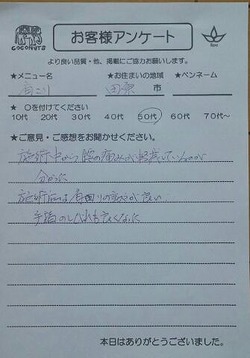 COCONUTS
お客様アンケート
より良い品質・他、掲載にご協力お願いします。
★メニュー名 ★お住まいの地域 ★ペンネーム
肩コリ 市
★ ○を付けてください
10代 20代 30代 40代 50代 60代 70代~
★ご意見・ご感想をお聞かせください。
施術中から腕の痛みが軽減しているのが
分かった
施術後は首回りの が良い
手指のしびれも良くなった
本日はありがとうございました。